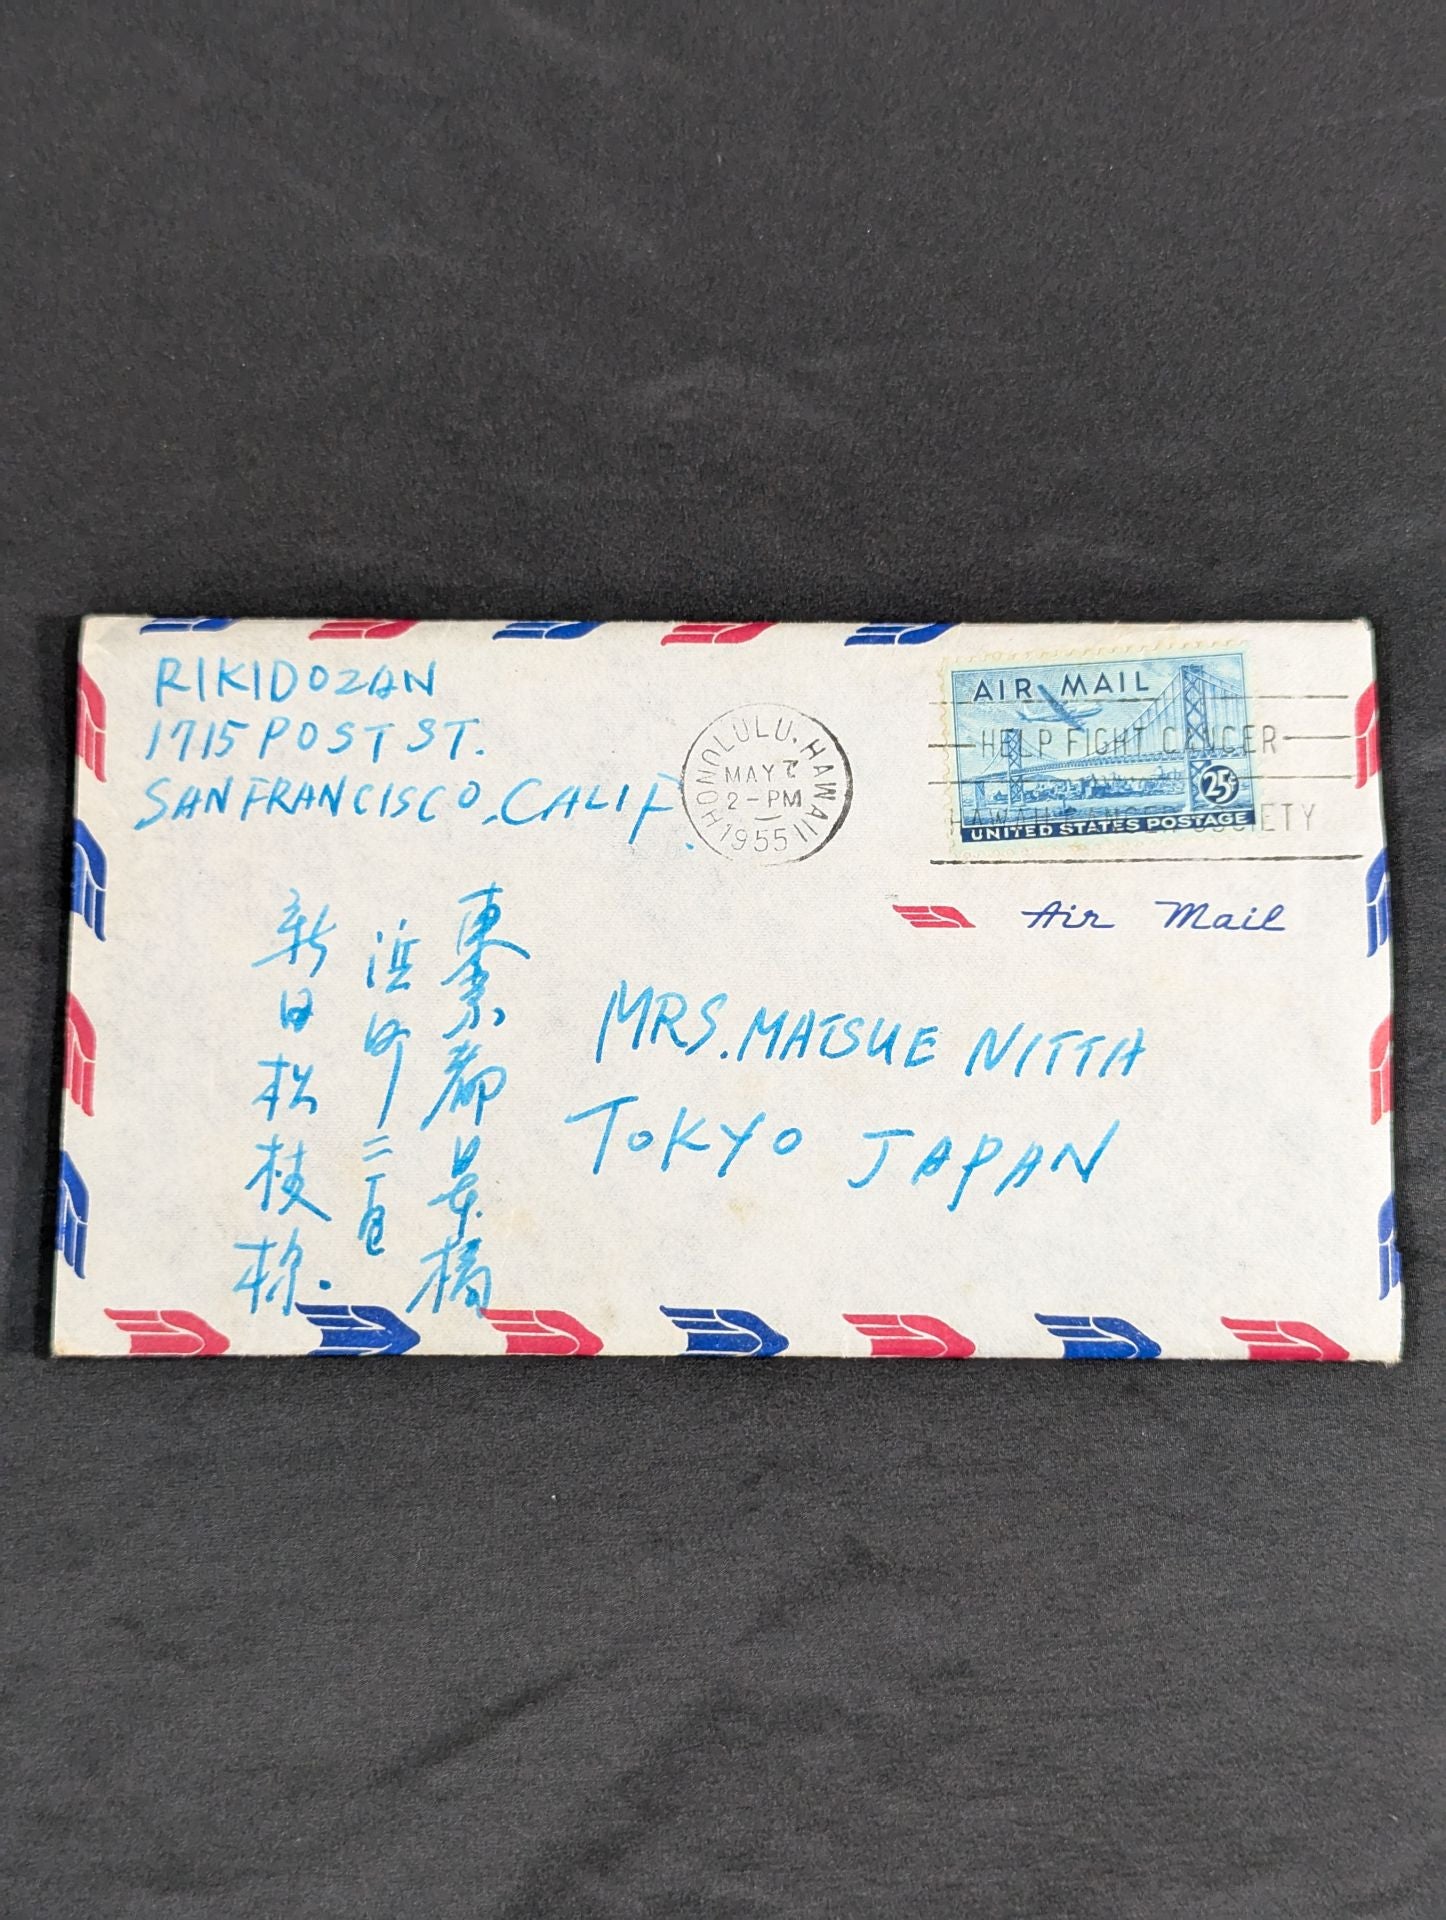 RIKIDOZAN
1715 POST ST.
SAN FRANCISCO, CALIF.
HONOLULU, HAWAII
MAY 7
2-PM
1955
AIR MAIL
HELP FIGHT CANCER
HAWAII CANCER SOCIETY
25¢
UNITED STATES POSTAGE
Air Mail
MRS. MATSUE NITTA
TOKYO JAPAN
東京都日本橋
浜町二丁目
新田松枝様.